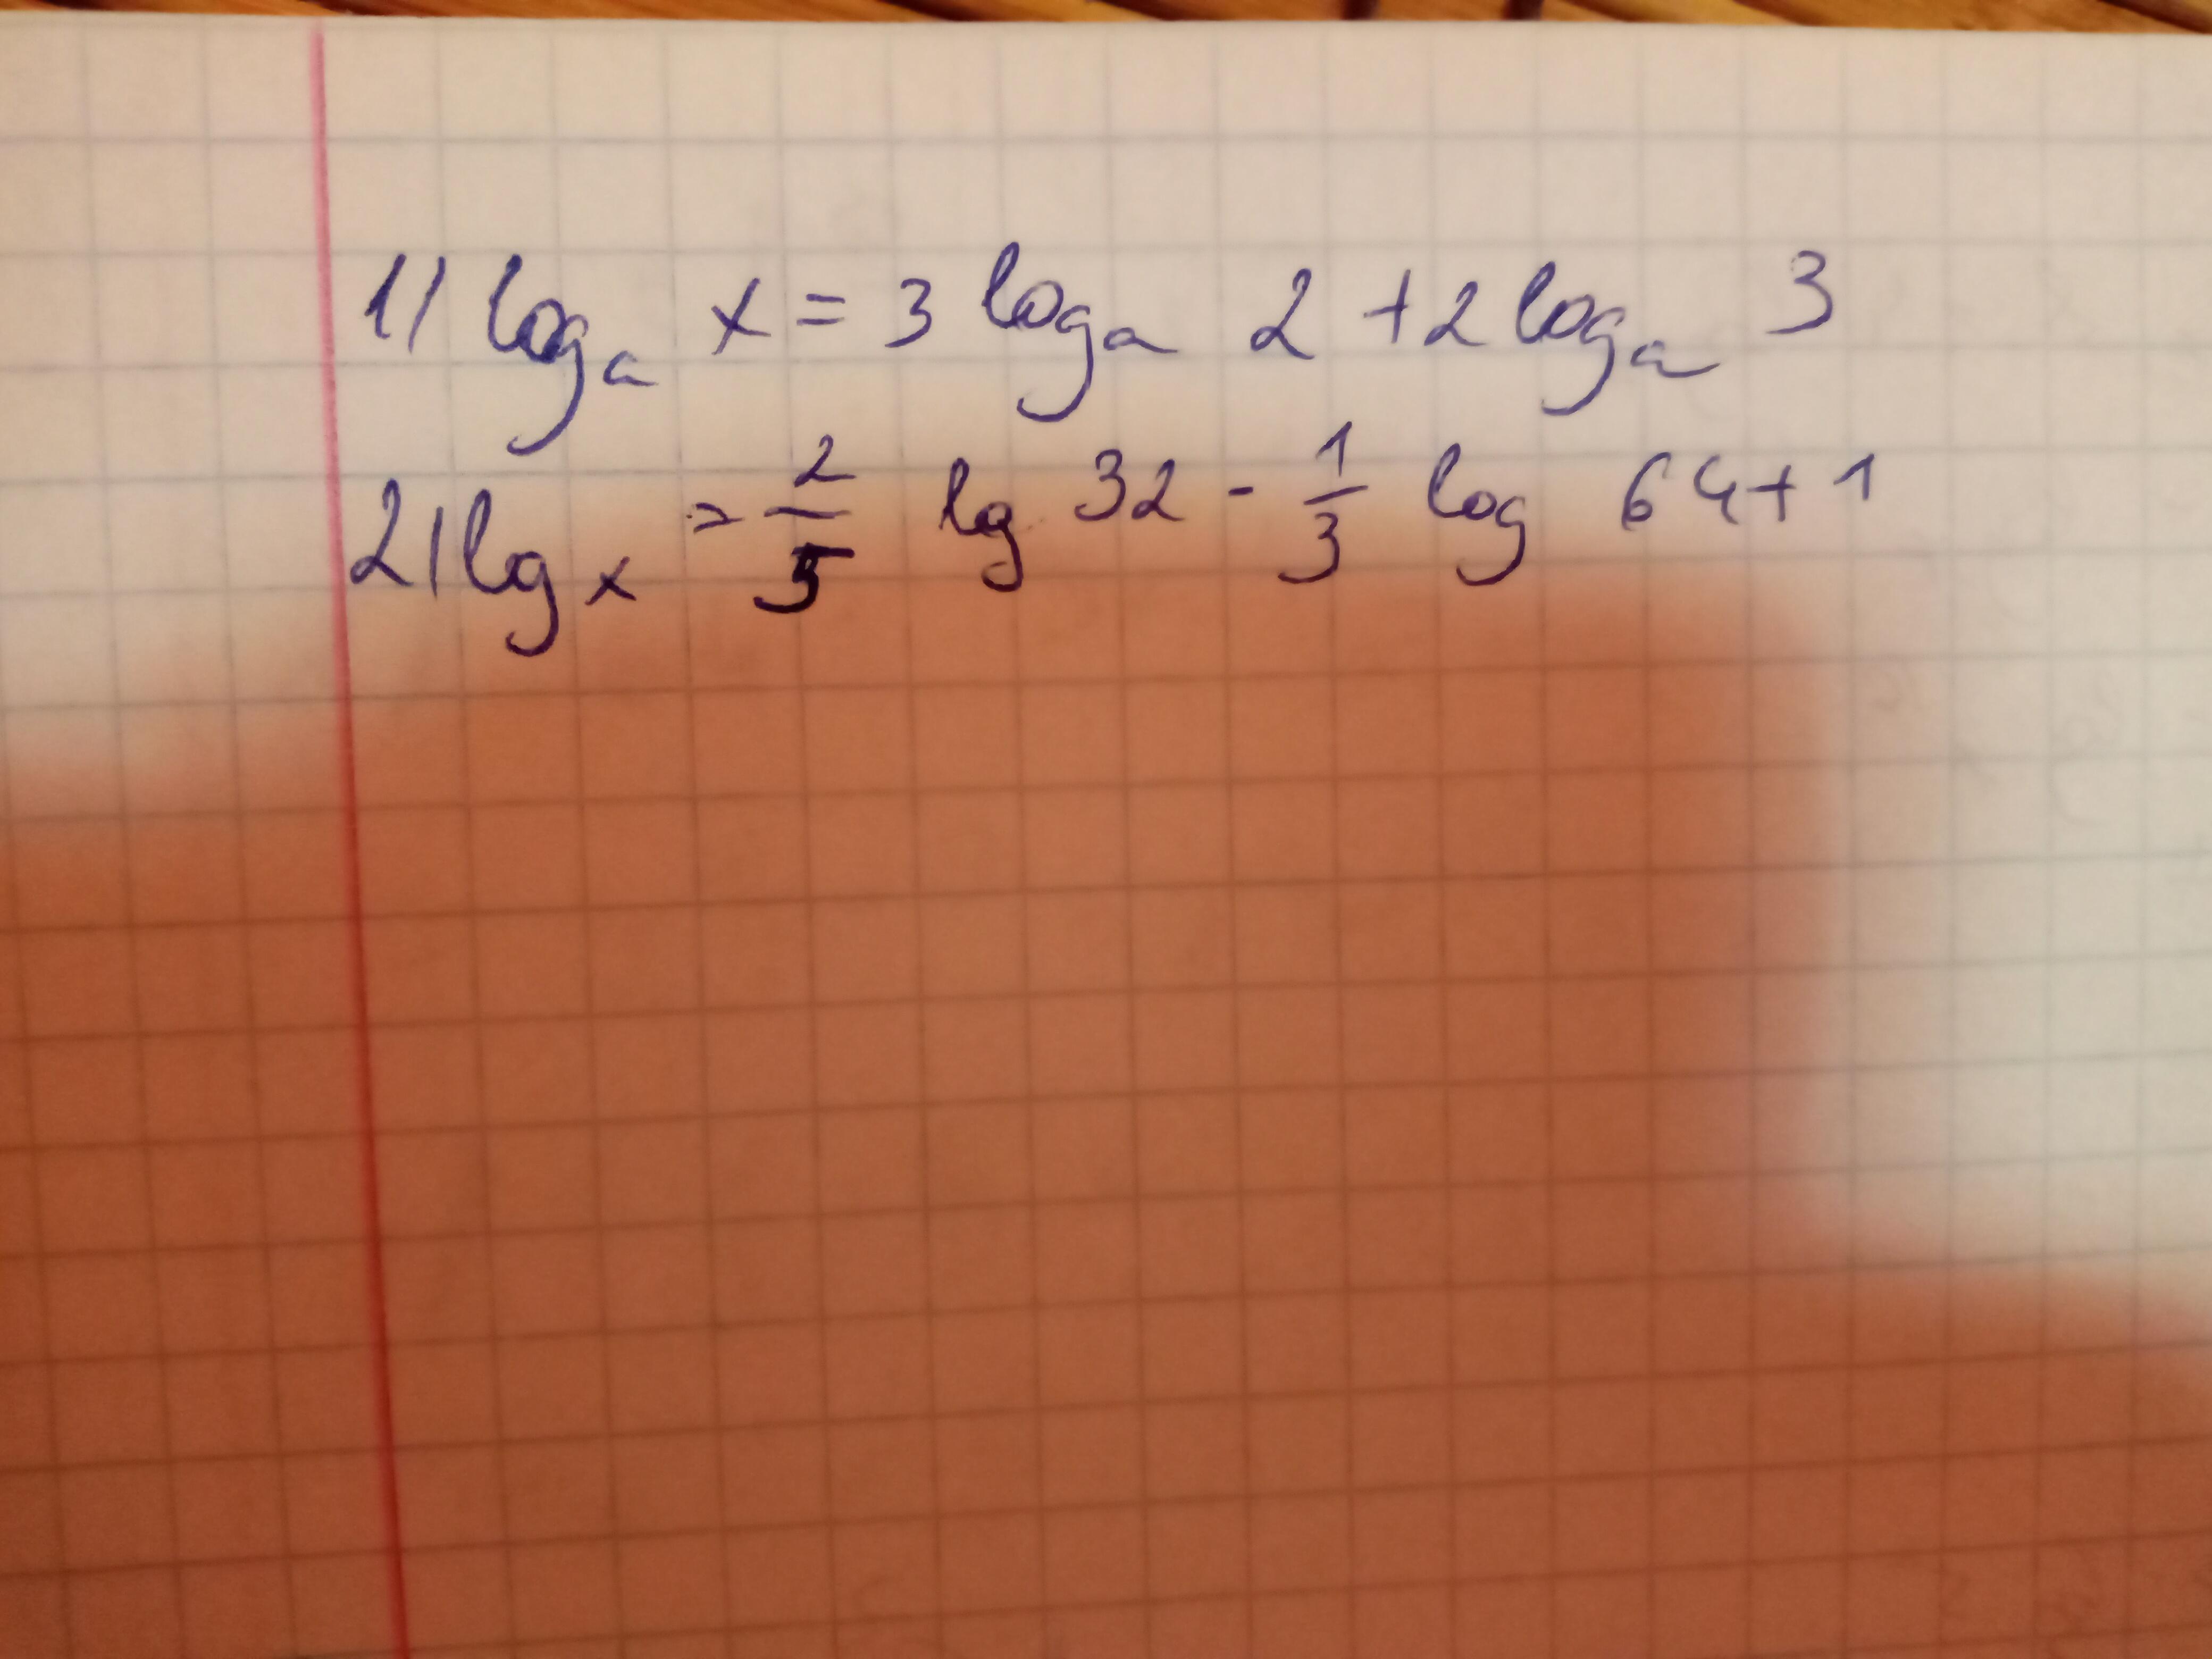 1) logₐ x = 3 logₐ 2 + 2 logₐ 3
2) lg x = 2/5 lg 32 - 1/3 log 64 + 1